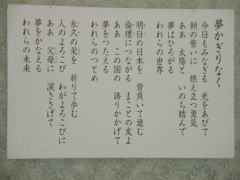 夢かぎりなく
今日もみなぎる 光をあびて
朝の誓いに 燃え立つ勇気
ああ 太陽と いのち結んで
夢はひろがる
われらの世界
明日の日本を 背負いて進む
倫理につながる まことの友よ
ああ この国の 誇りかかげて
夢をつたえる
われらのつとめ
永久の栄を 祈りて歩む
人のよろこび わがよろこびに
ああ 父母に 涙ささげて
夢をかなえる
われらの未来